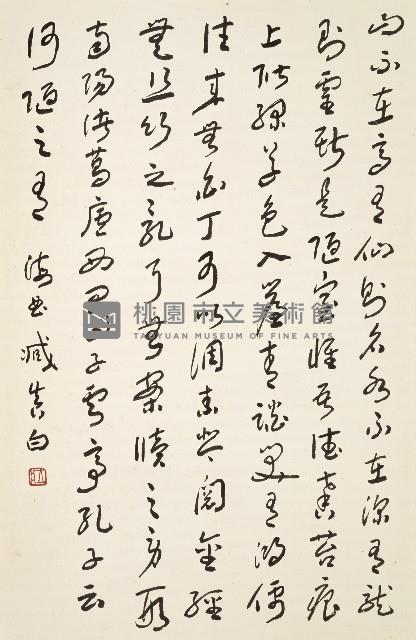 山不在高有仙則名水不在深有龍
則靈斯是陋室惟吾德馨苔痕
上階綠草色入簾青談笑有鴻儒
往來無白丁可以調素琴閱金經
無絲竹之亂耳無案牘之勞形
南陽諸葛廬西蜀子雲亭孔子云
何陋之有 海曲臧真白
桃園市立美術館
TAOYUAN MUSEUM OF FINE ARTS